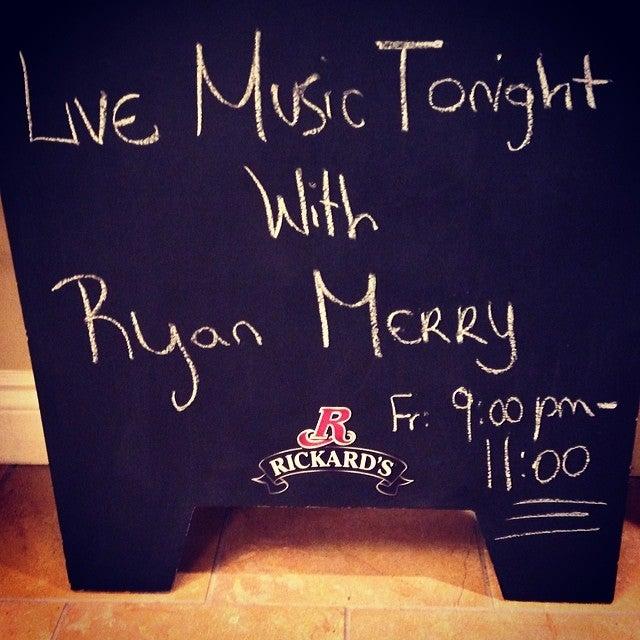 Live Music Tonight
With
Ryan Merry
Fri: 9:00 pm-
11:00
R
RICKARD'S